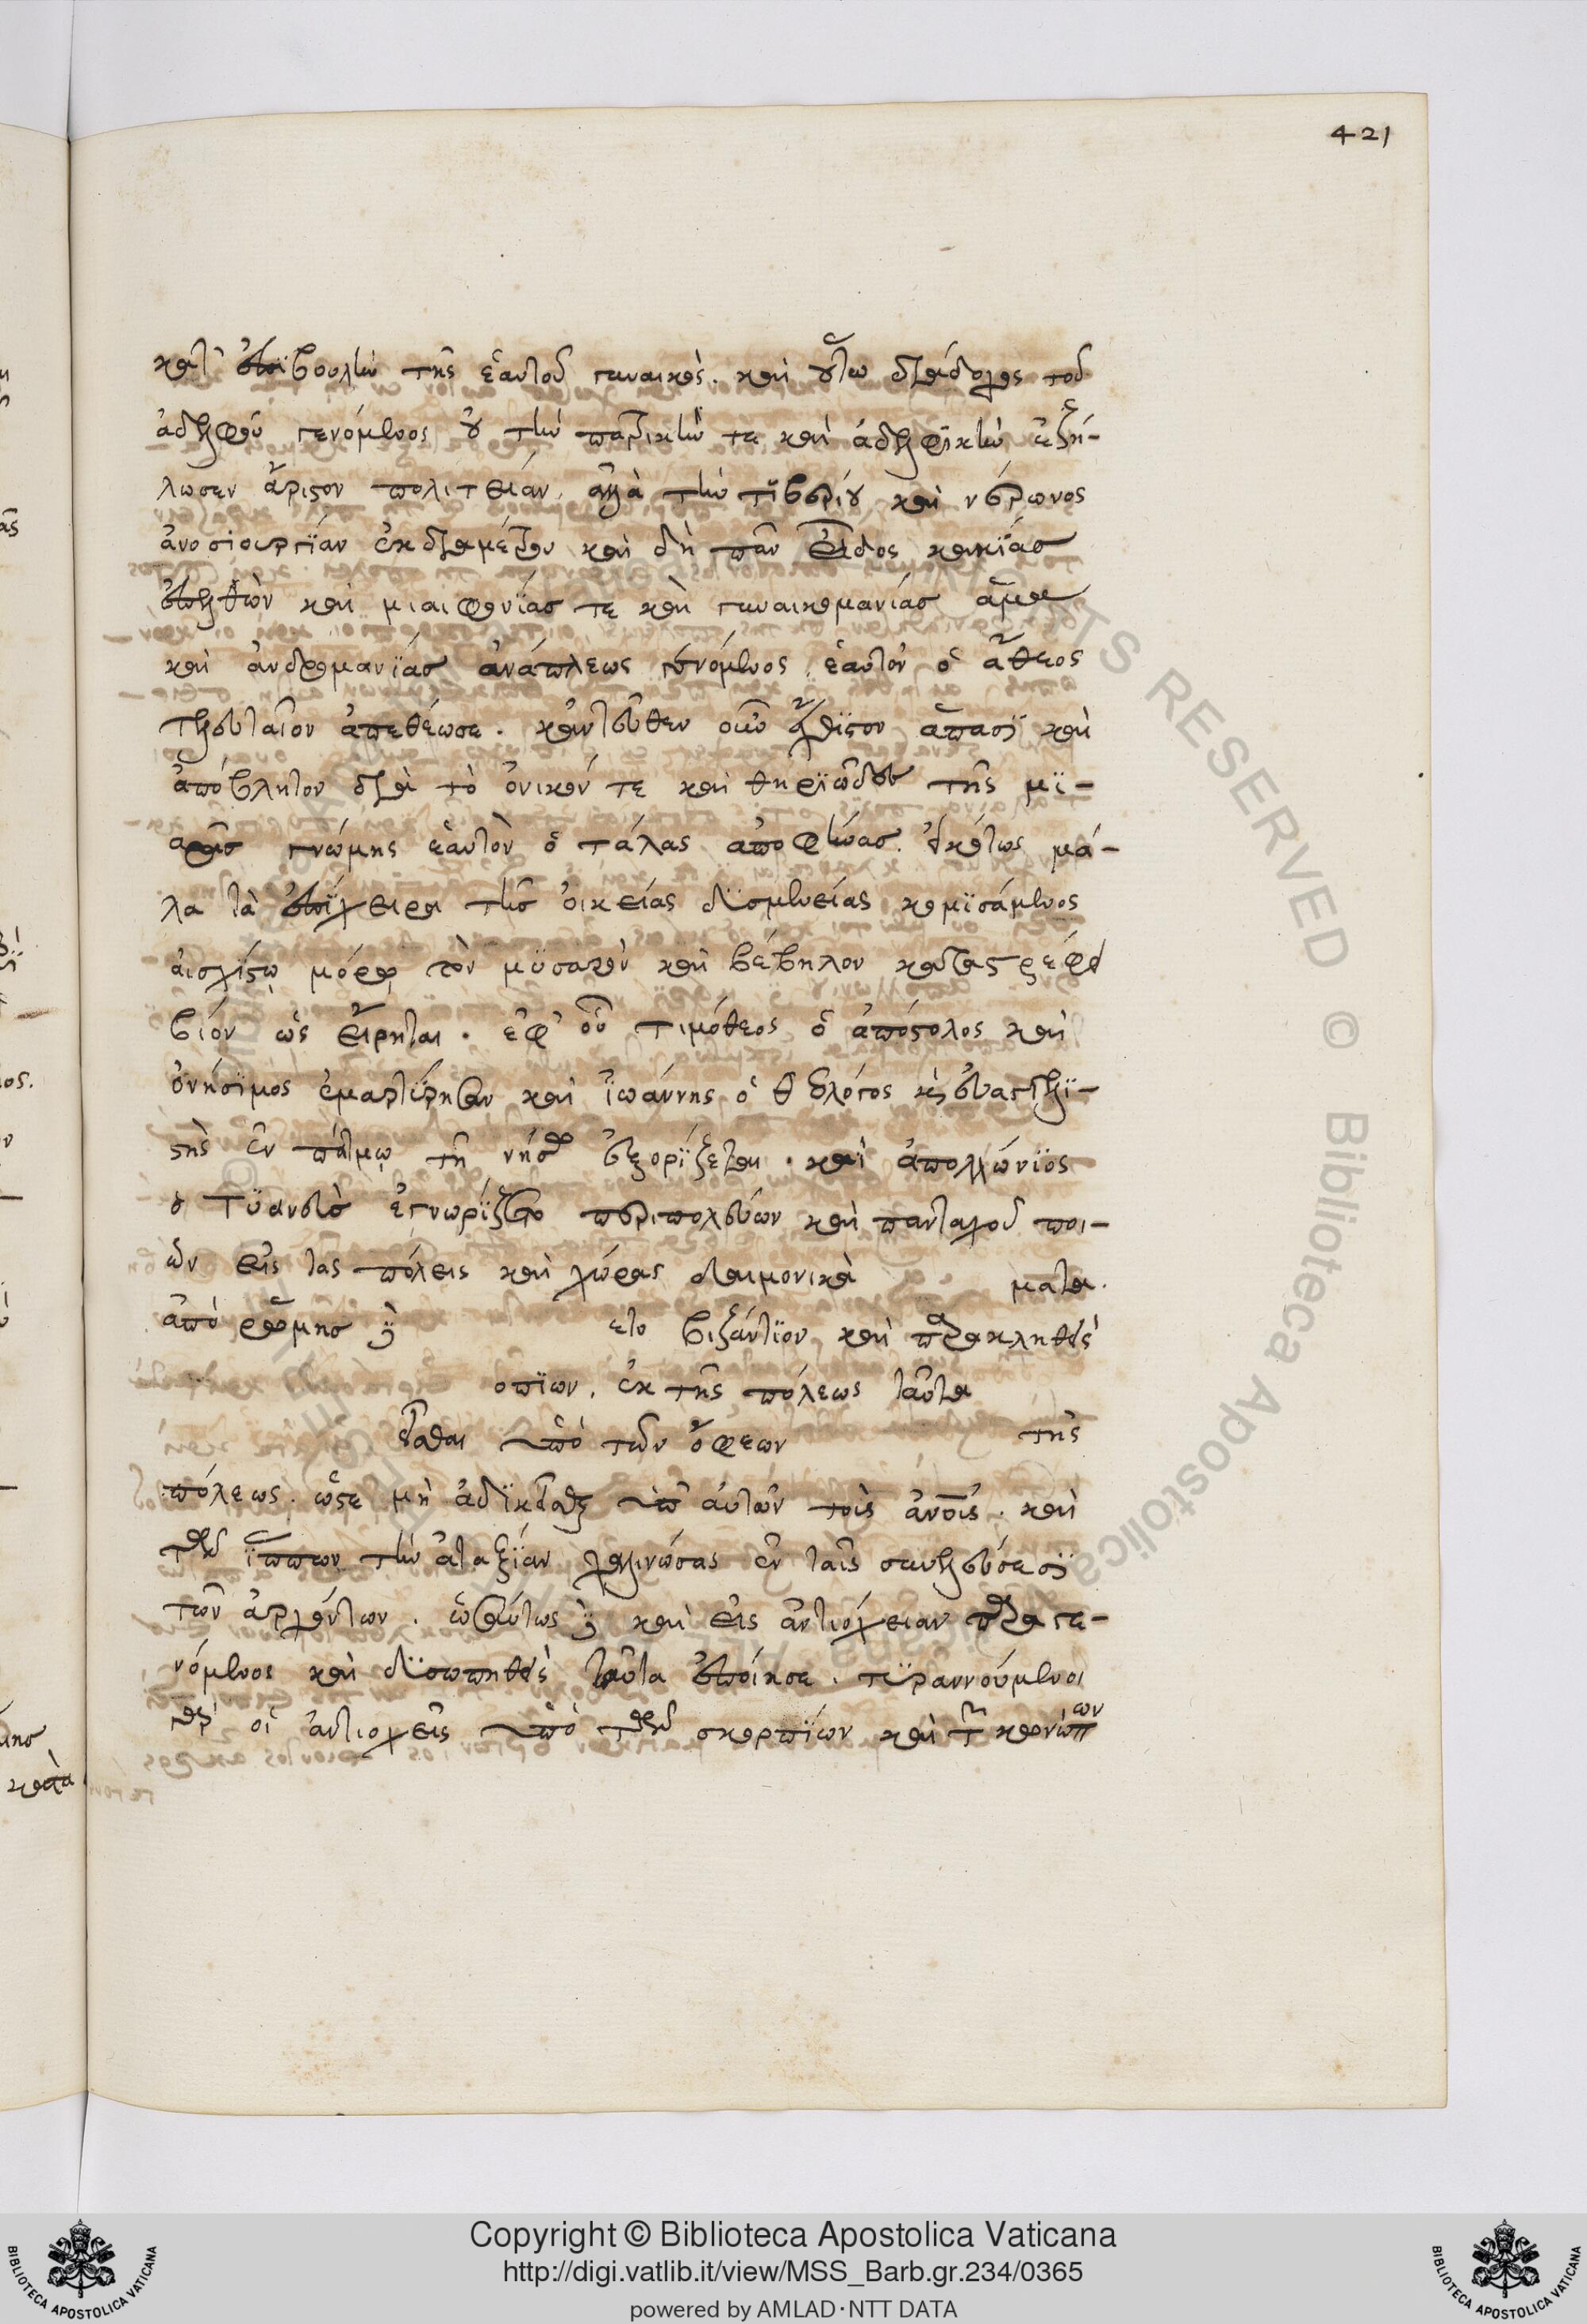 421
κατ' ἐπιβουλὴν τῆς ἑαυτοῦ γυναικός. καὶ οὕτω διάδοχος τοῦ
ἀδελφοῦ γενόμενος οὐ τὴν πατρικὴν τε καὶ ἀδελφικὴν ἐζή-
λωσεν ἄριστον πολιτείαν, ἀλλὰ τὴν τιβερίου καὶ νέρωνος
ἀνοσιουργίαν ἐκ διαμέτρου καὶ δὴ πᾶν εἶδος κακίας
ἐπελθὼν καὶ μιαιφονίας τε καὶ γυναικομανίας ἅμα
καὶ ἀνδρομανίας ἀνάπλεως γενόμενος, ἑαυτὸν ὁ ἄθεος
τελευταῖον ἀπεθέωσε. κἀντεῦθεν οὖν ἔχθιστον ἅπασι καὶ
ἀπόβλητον διὰ τὸ ὀνικόν τε καὶ θηριῶδες τῆς μι-
αρᾶς γνώμης ἑαυτὸν ὁ τάλας ἀποφήνας. εἰκότως μά-
λα τὰ ἐπίχειρα τῆς οἰκείας δυσμενείας κομισάμενος
αἰσχίστῳ μόρῳ τὸν μυσαρὸν καὶ βέβηλον καταστρέφει
βίον ὡς εἴρηται. ἐφ' οὗ τιμόθεος ὁ ἀπόστολος καὶ
ὀνήσιμος ἐμαρτύρησαν καὶ ἰωάννης ὁ θεολόγος κὲ εὐαγγελι-
στὴς ἐν πάτμῳ τῇ νήσῳ ἐξορίζεται. καὶ ἀπολλώνιος
ὁ Τυανεὺς ἐγνωρίζετο περιπολεύων καὶ πανταχοῦ ποι-
ῶν εἰς τὰς πόλεις καὶ χώρας δαιμονικὰ ματα.
ἀπὸ ῥώμης γὰρ ετο βιζάντιον καὶ παρακληθεὶς
οπίων, ἐκ τῆς πόλεως ταῦτα
εῖσθαι ὑπὸ τῶν ὄφεων τῆς
πόλεως. ὥστε μὴ ἀδικεῖσθαι ὑπ' αὐτῶν τοὺς ἀνους. καὶ
τῶν ἵππων τὴν ἀταξίαν χαλινώσας ἐν ταῖς συνελεύσεσι
τῶν ἀρχόντων. ὡσαύτως γὰρ καὶ εἰς ἀντιόχειαν παραγε-
νόμενος καὶ δυσωπηθεὶς ταῦτα ἐποίησε. τυραννούμενοι
γὰρ οἱ ἀντιοχεῖς ὑπὸ τῶν σκορπίων καὶ τῶν κωνώπων